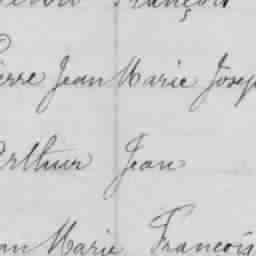 François
Pierre Jean Marie Joseph
Arthur Jean
Jean Marie François